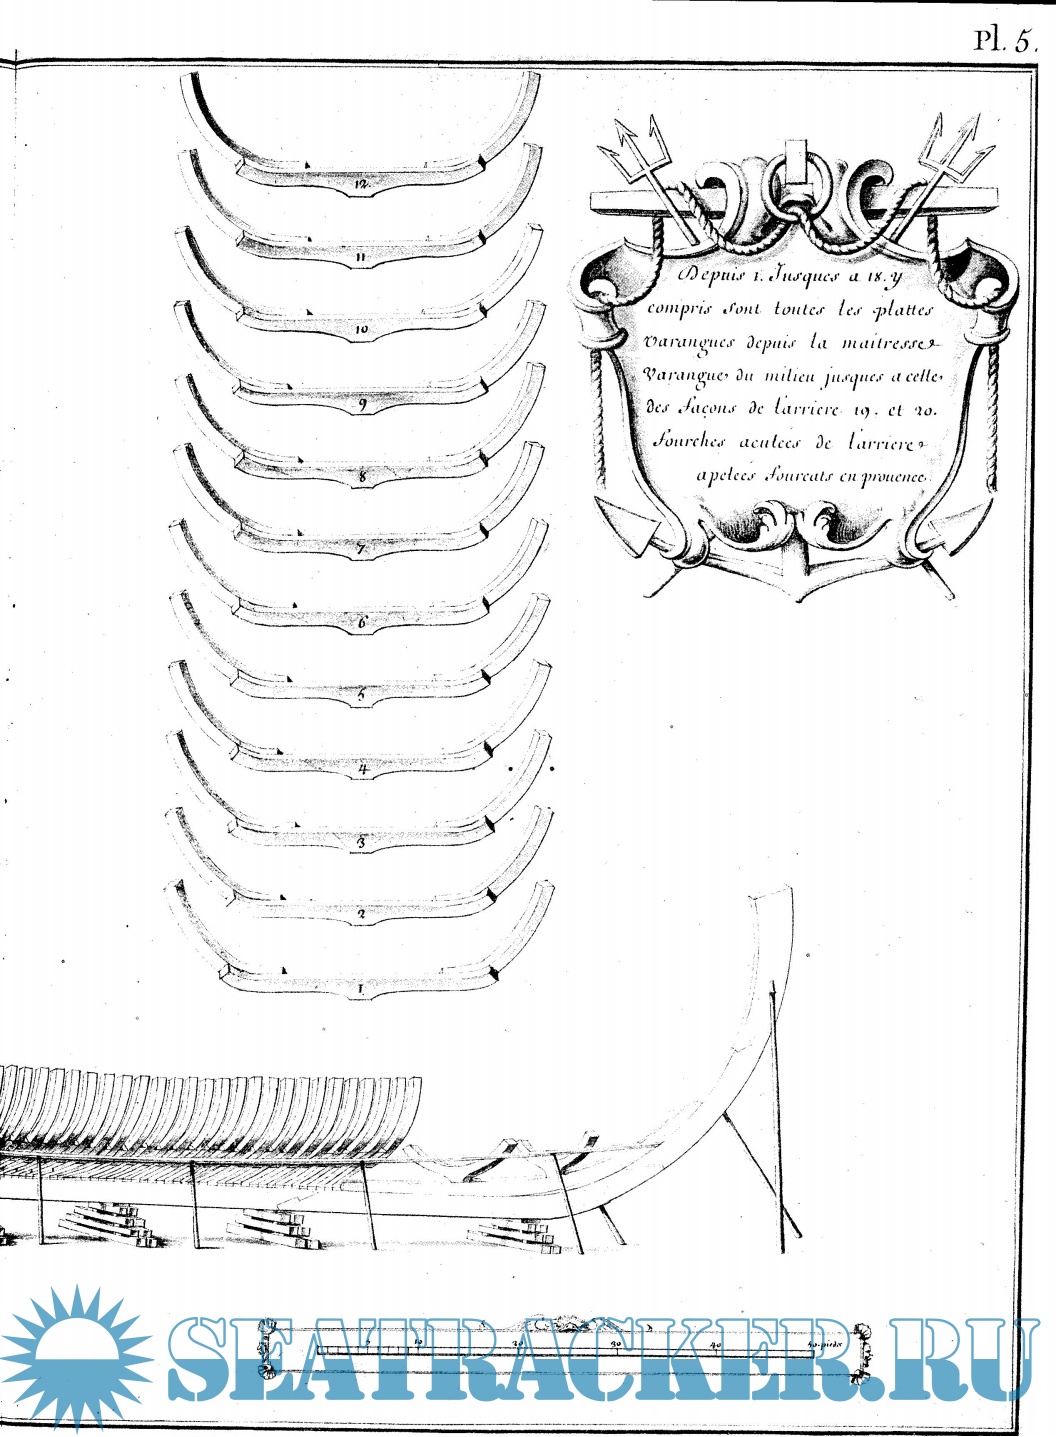 Pl. 5.
Depuis 1. Jusques a 18. y
compris sont toutes les plattes
Varangues depuis la maitresse
Varangue du milieu jusques a celle
des façons de l'arriere 19. et 20.
fourches aculeés de l'arriere
apeleés fourcats en prouence.
12.
11
10
9
8
7
6
5
4
3
2
1
5 10 20 30 40 50 pieds
SEATRACKER.RU